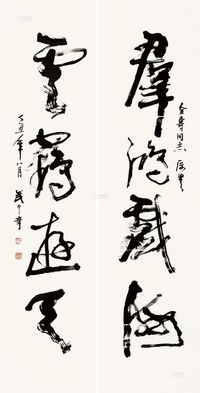 群鸿戏海
全寿同志属书
云鹤游天
丁丑年八月 武中奇